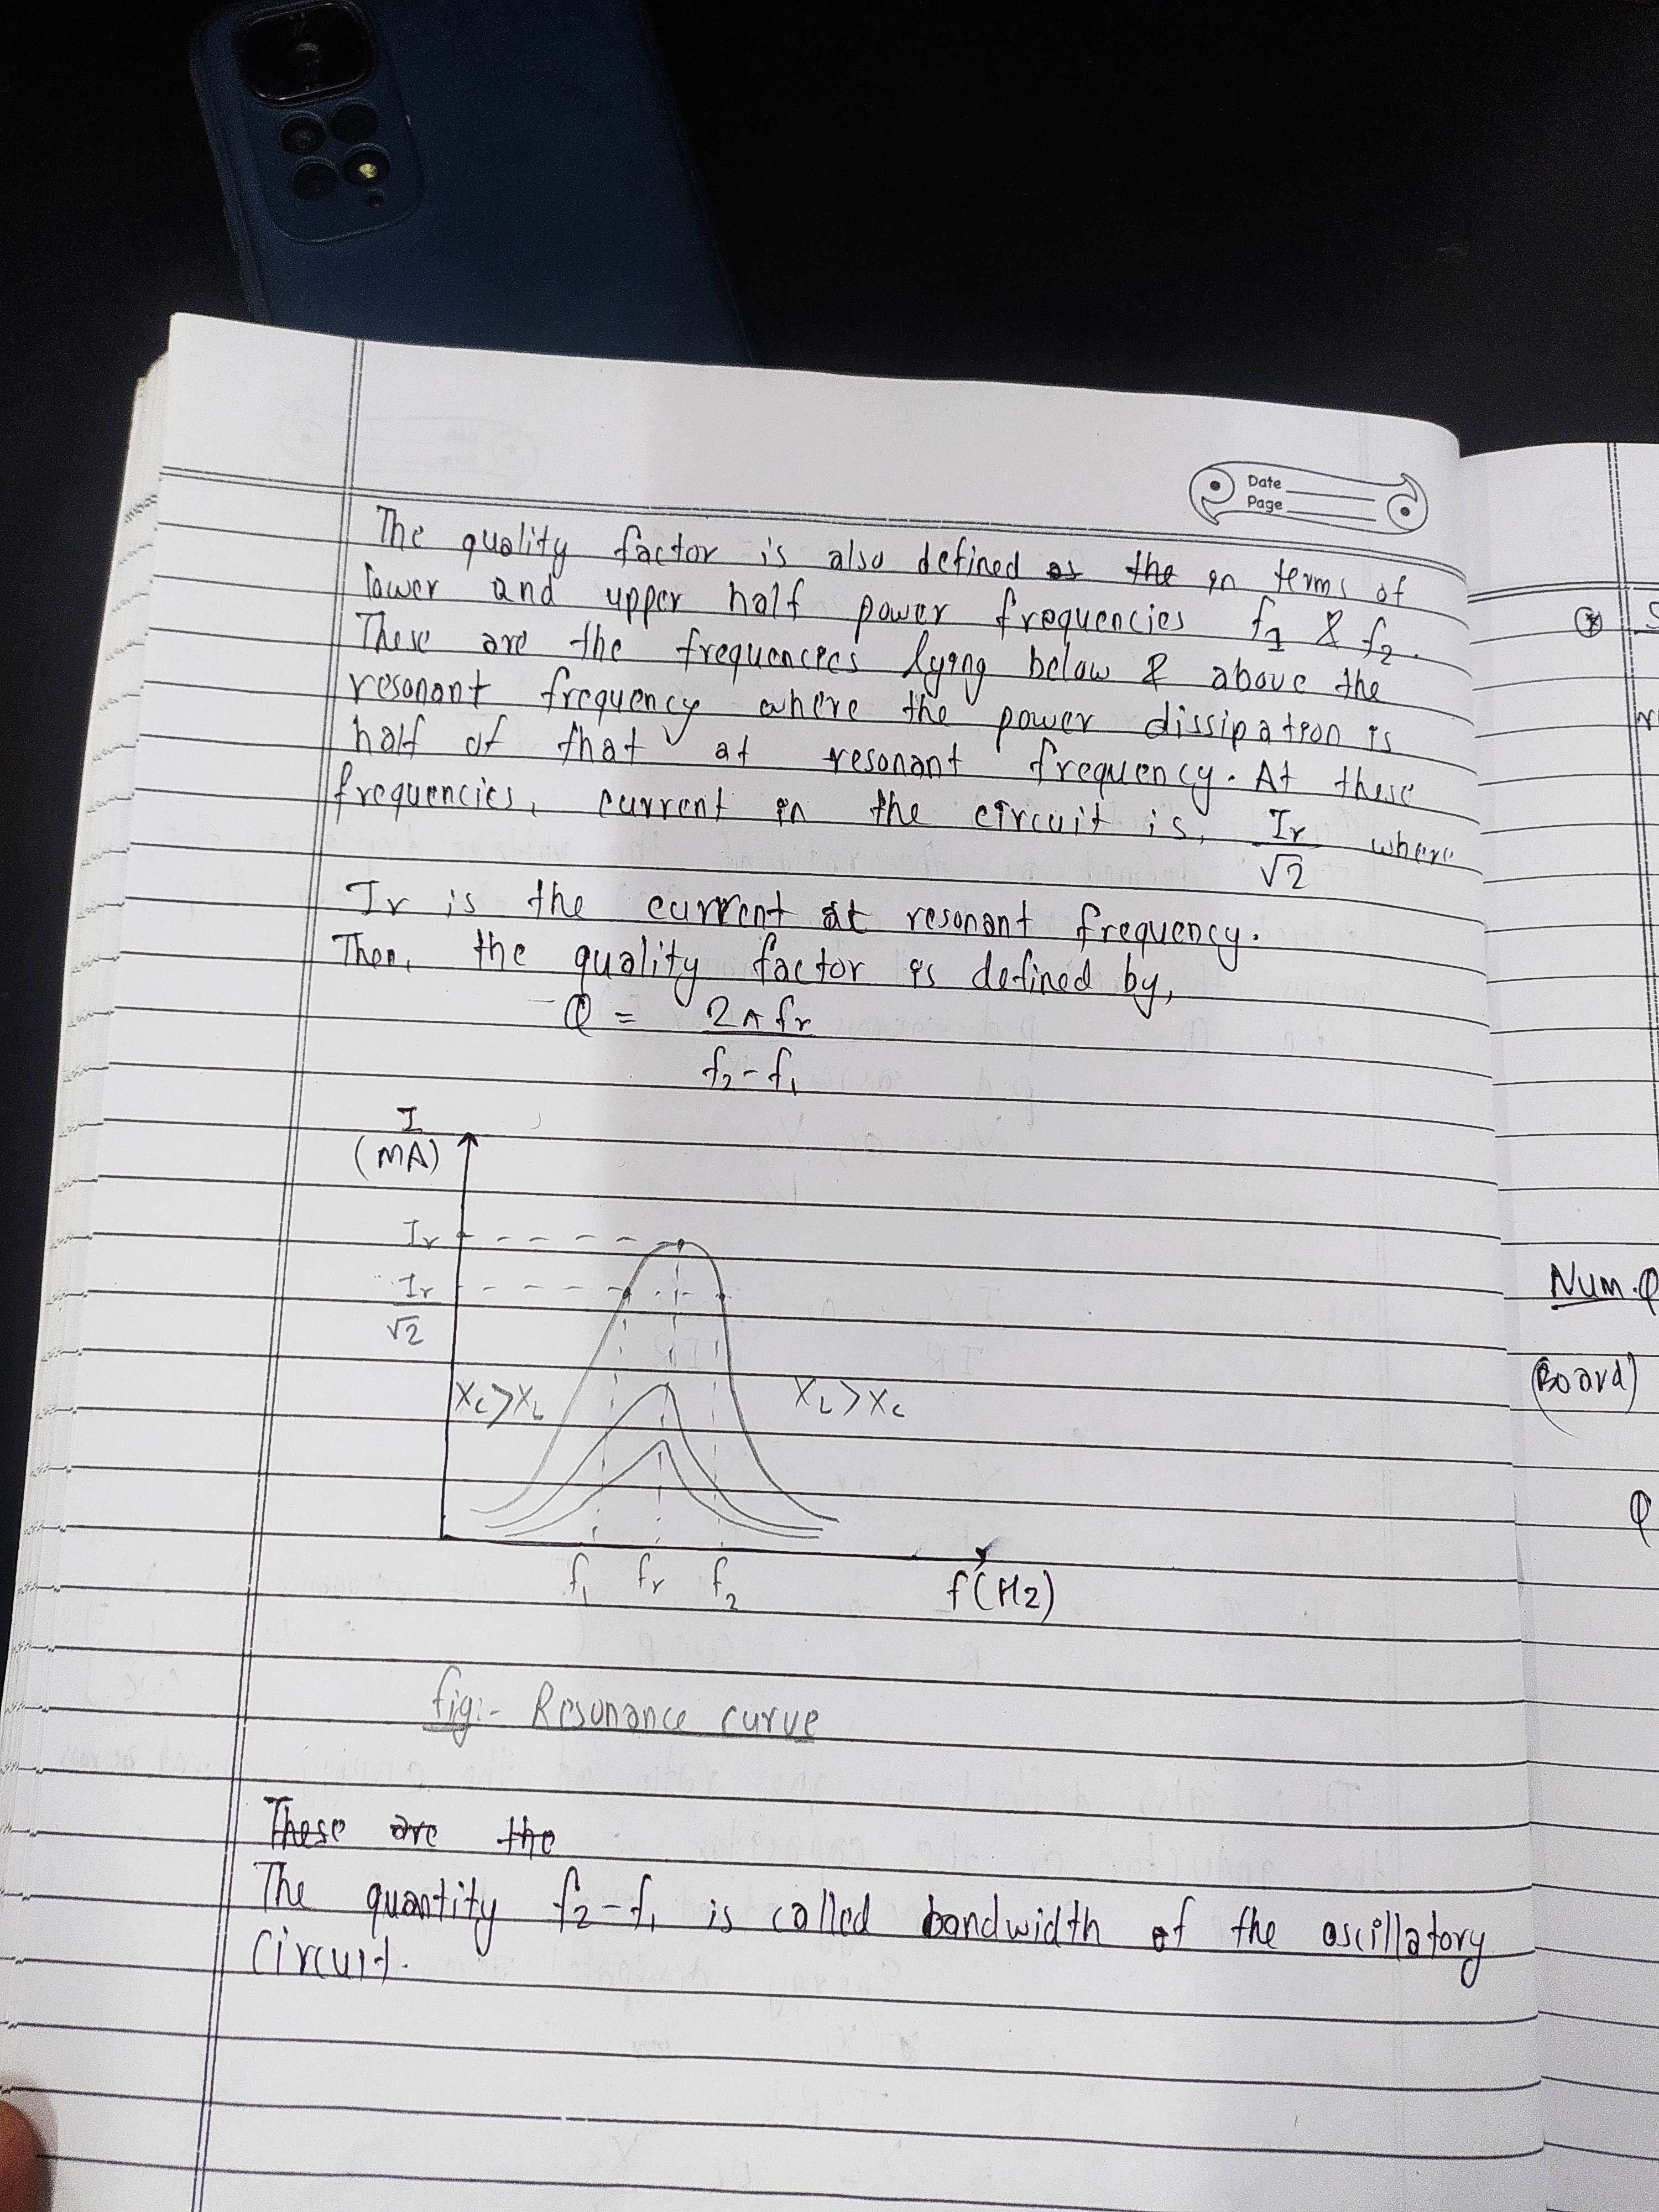 Date
Page
The quality factor is also defined as the in terms of
lower and upper half power frequencies f₁ & f₂.
These are the frequencies lying below & above the
resonant frequency where the power dissipation is
half of that at resonant frequency. At these
frequencies, current in the circuit is, Ir/√2 where
Ir is the current at resonant frequency.
Then, the quality factor is defined by,
Q = 2π fr / f₂-f₁
I
(MA)
Ir
Ir/√2
Xc>XL
XL>Xc
f₁ fr f₂
f(Hz)
fig:- Resonance curve
These are the
The quantity f₂-f₁ is called bandwidth of the oscillatory
circuit.
Num.Q
(Board)
Q